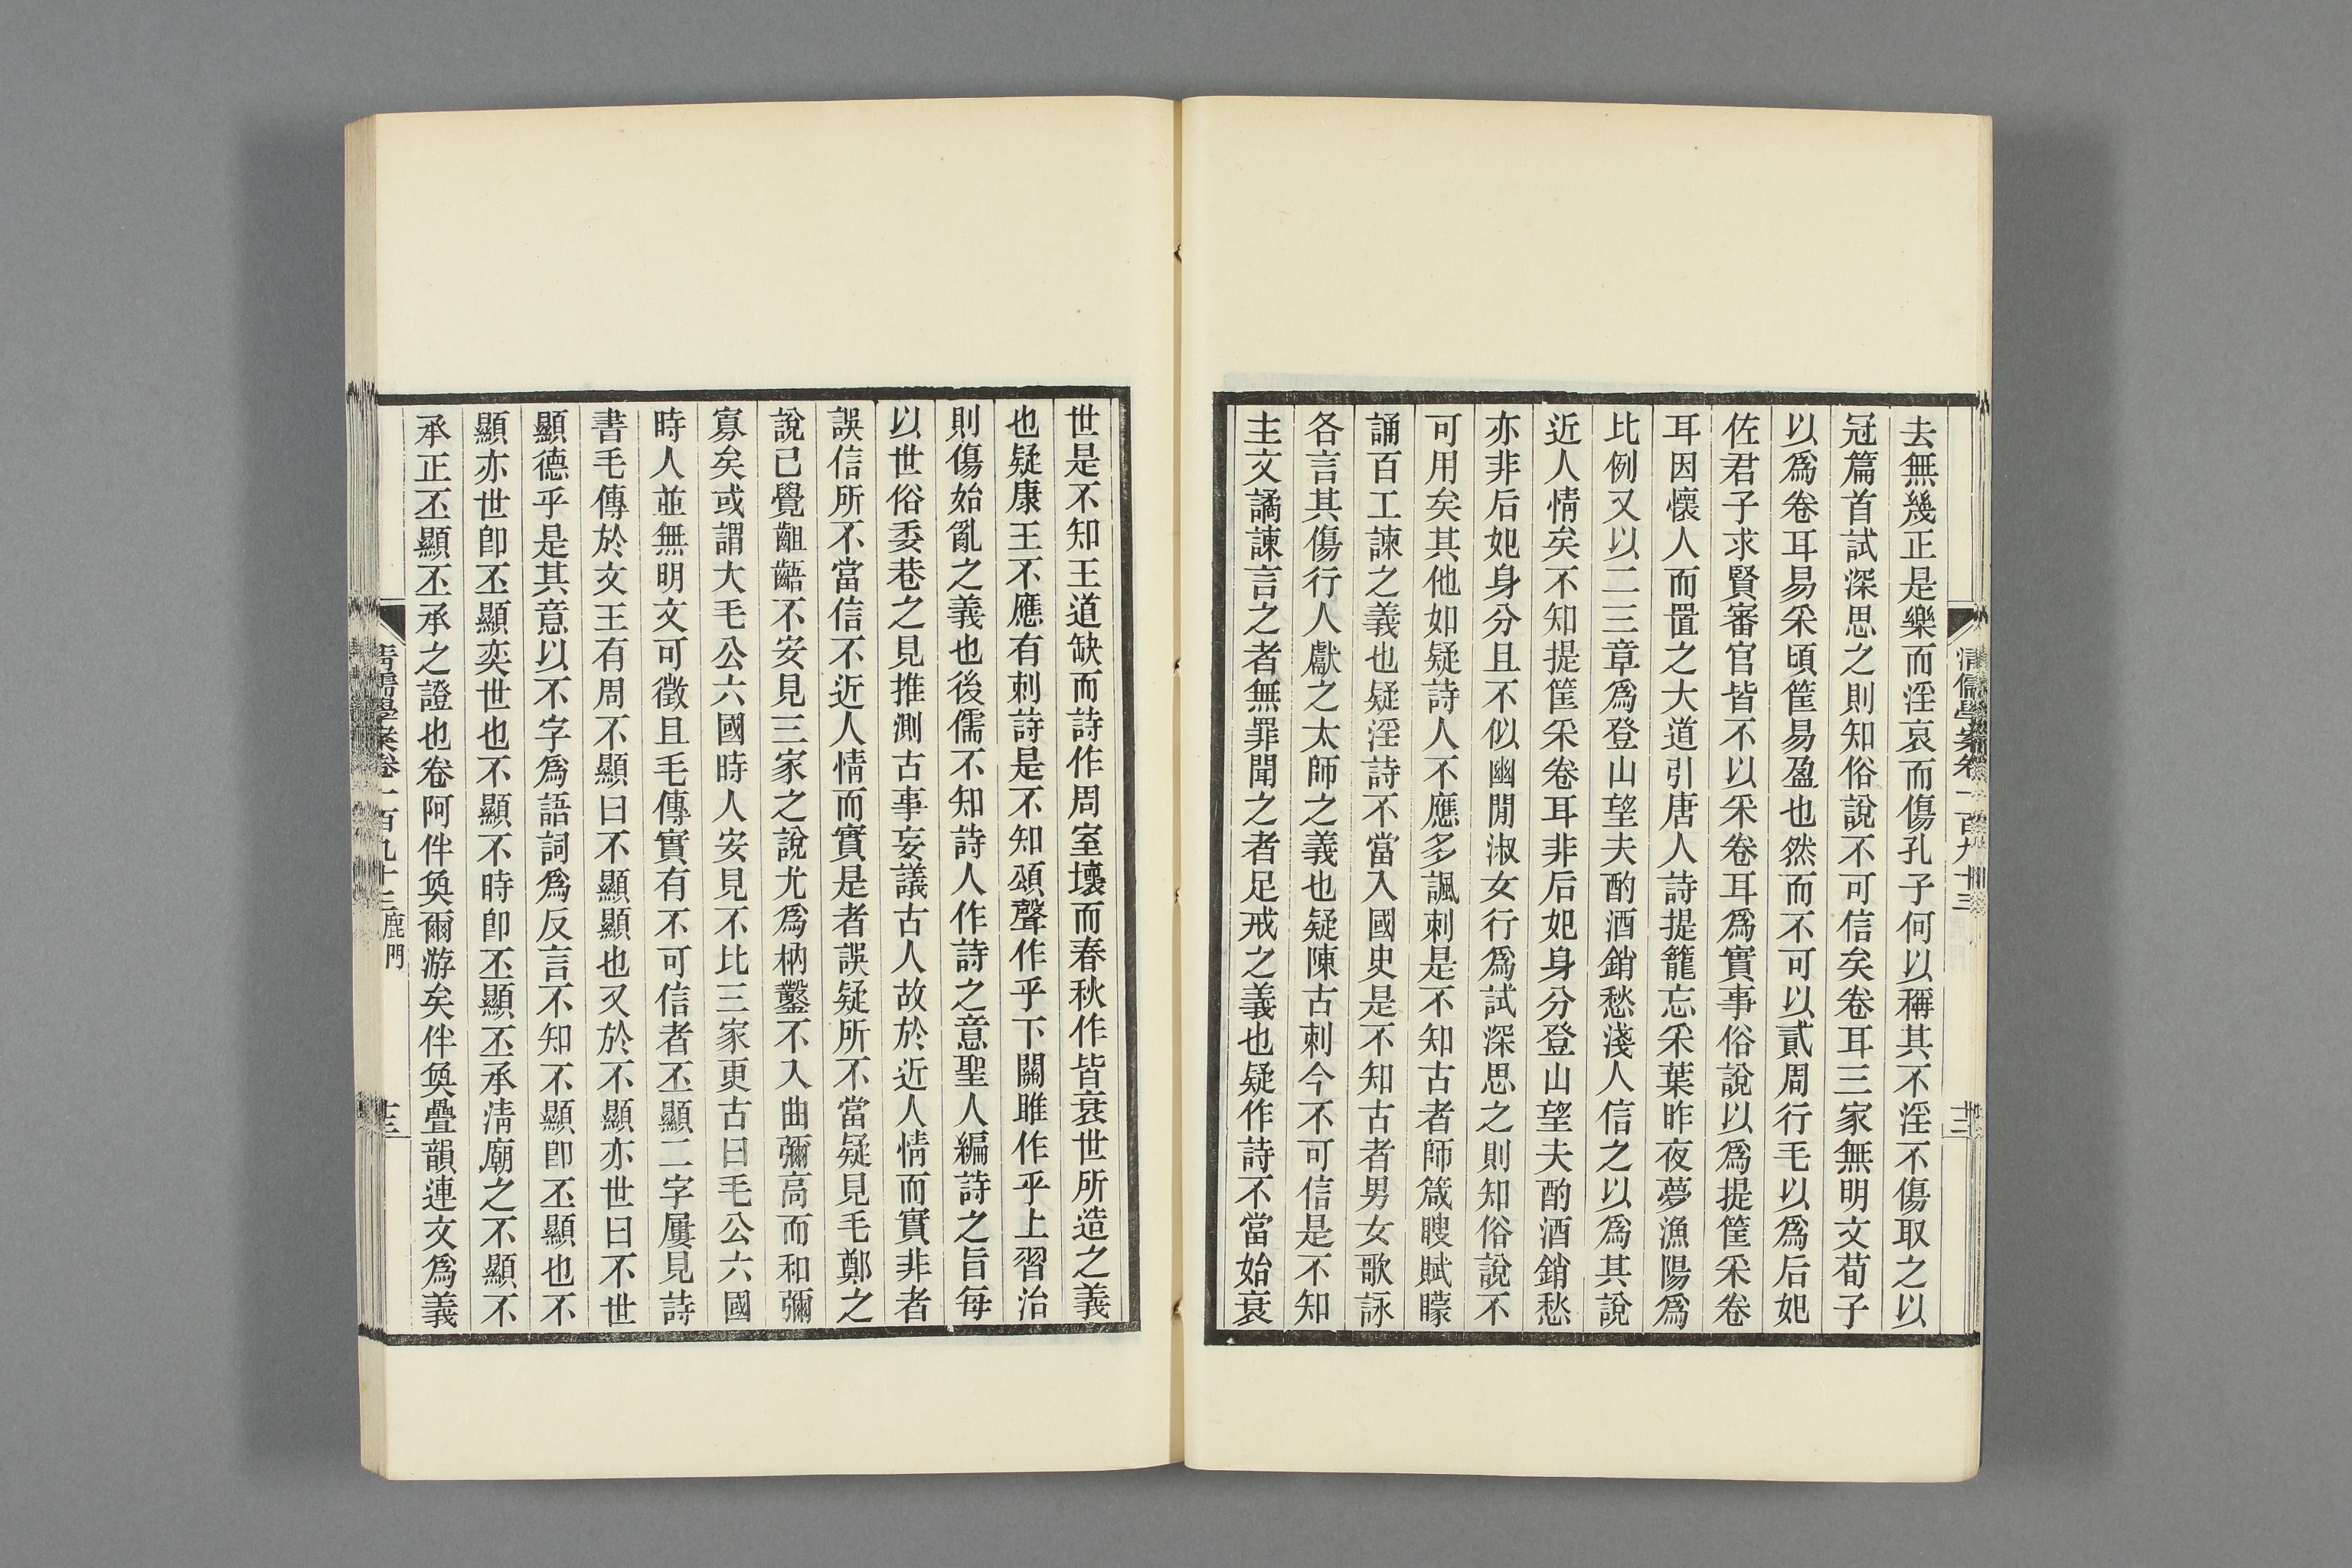 清儒學案卷一百九十三
十二
去無幾正是樂而淫哀而傷孔子何以稱其不淫不傷取之以
冠篇首試深思之則知俗說不可信矣卷耳三家無明文荀子
以爲卷耳易采頃筐易盈也然而不可以貳周行毛以爲后妃
佐君子求賢審官皆不以采卷耳爲實事俗說以爲提筐采卷
耳因懷人而置之大道引唐人詩提籠忘采葉昨夜夢漁陽爲
比例又以二三章爲登山望夫酌酒銷愁淺人信之以爲其說
近人情矣不知提筐采卷耳非后妃身分登山望夫酌酒銷愁
亦非后妃身分且不似幽閒淑女行爲試深思之則知俗說不
可用矣其他如疑詩人不應多諷刺是不知古者師箴瞍賦矇
誦百工諫之義也疑淫詩不當入國史是不知古者男女歌詠
各言其傷行人獻之太師之義也疑陳古刺今不可信是不知
主文譎諫言之者無罪聞之者足戒之義也疑作詩不當始衰
世是不知王道缺而詩作周室壞而春秋作皆衰世所造之義
也疑康王不應有刺詩是不知頌聲作乎下關雎作乎上習治
則傷始亂之義也後儒不知詩人作詩之意聖人編詩之旨每
以世俗委巷之見推測古事妄議古人故於近人情而實非者
誤信所不當信不近人情而實是者誤疑所不當疑見毛鄭之
說已覺齟齬不安見三家之說尤爲枘鑿不入曲彌高而和彌
寡矣或謂大毛公六國時人安見不比三家更古曰毛公六國
時人並無明文可徵且毛傳實有不可信者丕顯二字屢見詩
書毛傳於文王有周不顯曰不顯顯也又於不顯亦世曰不世
顯德乎是其意以不字爲語詞爲反言不知不顯卽丕顯也不
顯亦世卽丕顯奕世也不顯不時卽丕顯丕承淸廟之不顯不
承正丕顯丕承之證也卷阿伴奐爾游矣伴奐疊韻連文爲義
清儒學案卷一百九十三鹿門
十三